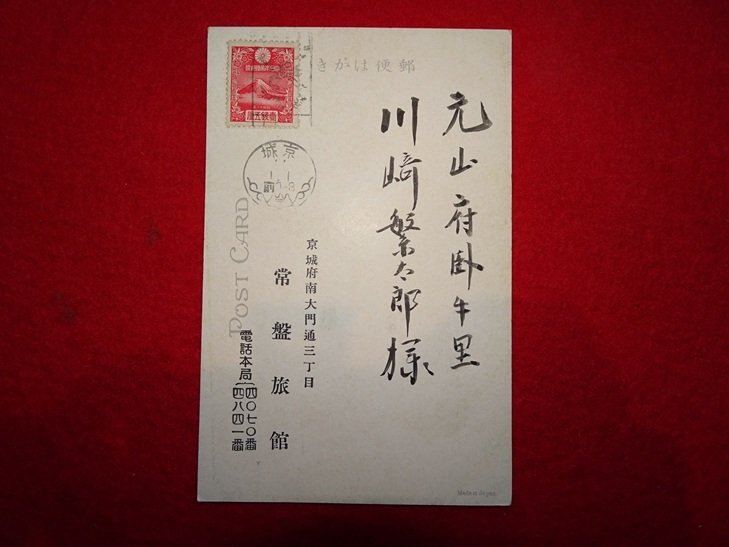 郵便はがき
元山府臥牛里
川﨑繁太郎様
京城府南大門通三丁目
常盤旅館
電話本局 二四〇七〇番
二四八四一番
POST CARD
京城
Made in Japan